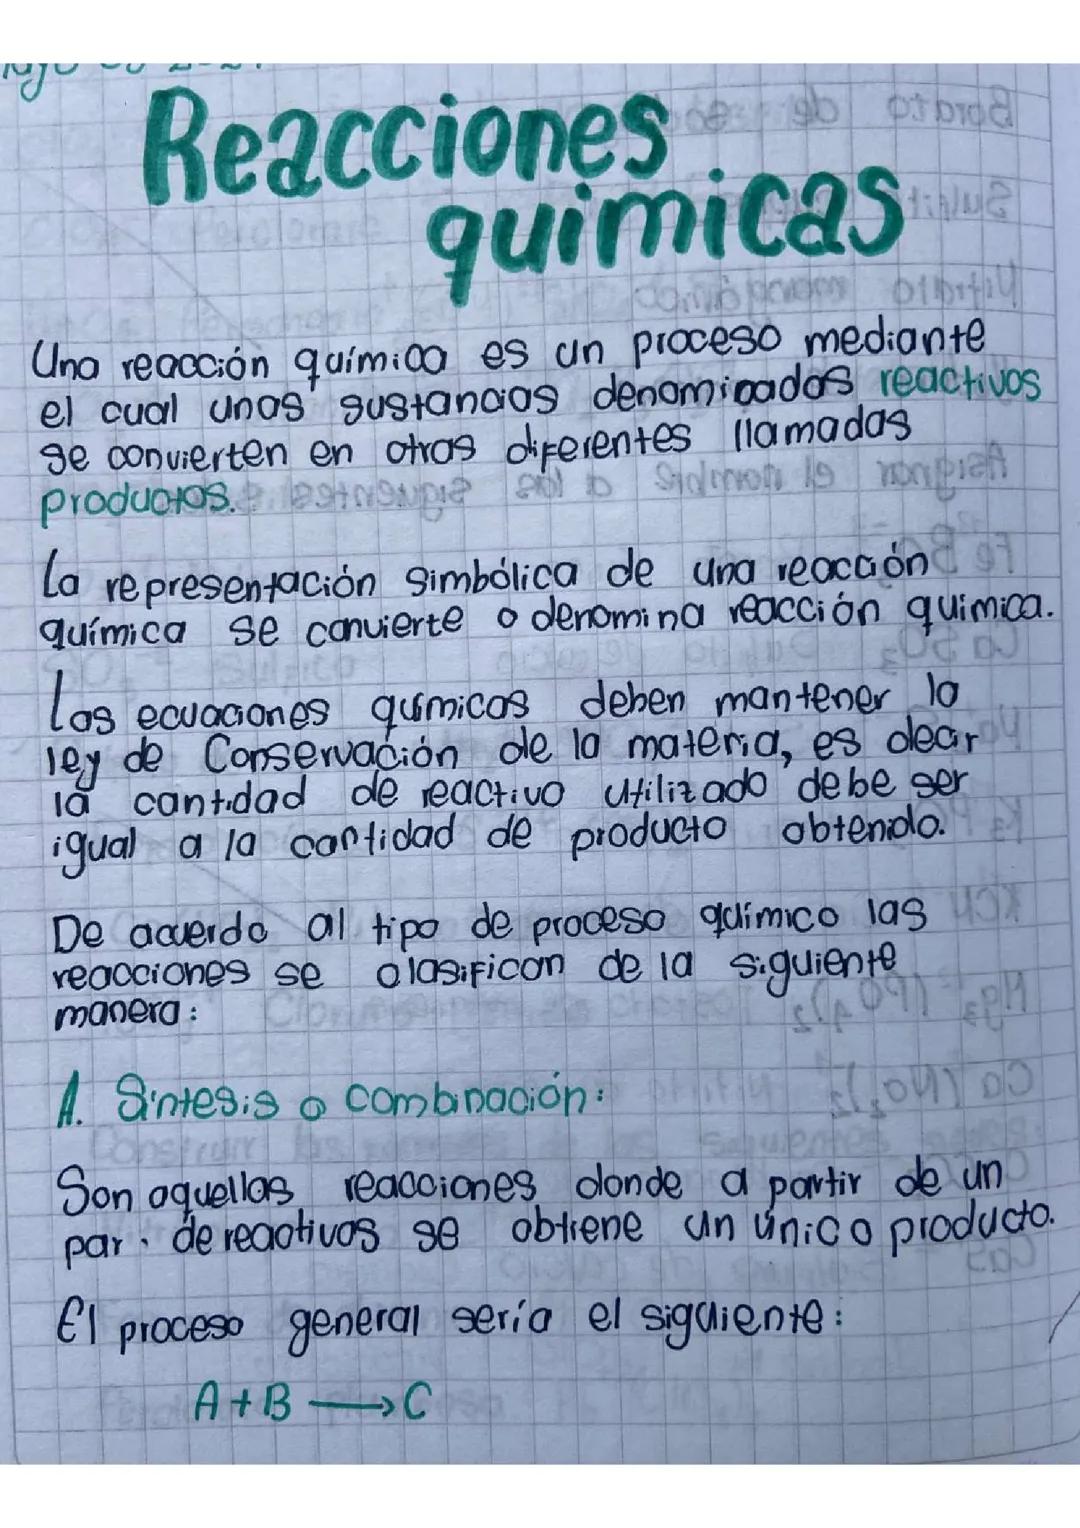 Reacciones
quimicas
Una reacción química es un proceso mediante
el cual unas sustancias denominadas reactivos
se convierten en otras diferentes llamadas
productos.
La representación simbólica de una reacción
química se convierte o denomina reacción quimica.
Las ecuaciones químicas deben mantener la
ley de Conservación de la materia, es decir
la cantidad de reactivo utilizado debe ser
igual a la cantidad de producto obtenido.
De acuerdo al tipo de proceso químico las
reacciones se clasifican de la siguiente
manera:
A. Síntesis o combinación:
Son aquellas reacciones donde a partir de un
par de reactivos se obtiene un único producto.
El proceso general sería el siguiente:
A + B ⟶ C